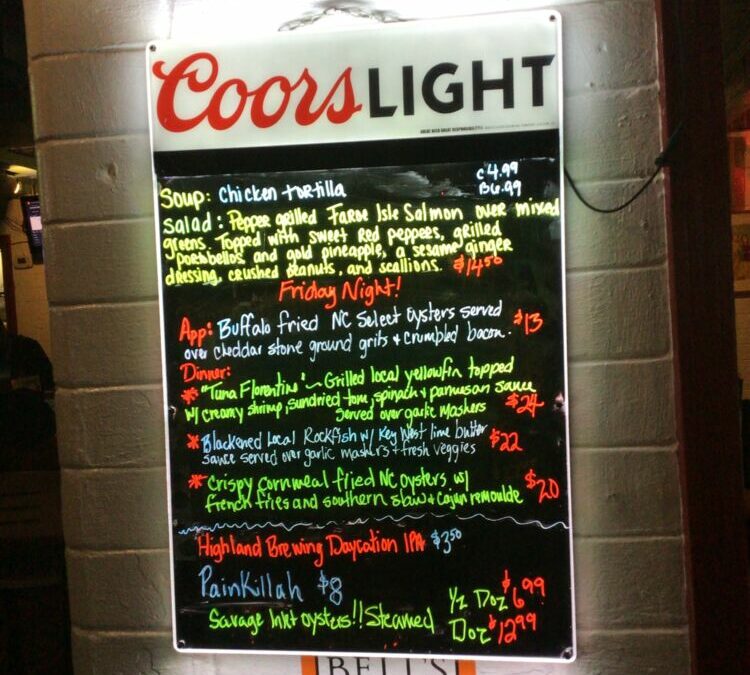 Coors LIGHT
GREAT BEER GREAT RESPONSIBILITY
Soup: Chicken tortilla c4.99
B6.99
Salad: Pepper grilled Faroe Isle Salmon over mixed
greens. Topped with sweet red peppers, grilled
portobellos, and gold pineapple, a sesame ginger
dressing, crushed peanuts, and scallions. $14.50
Friday Night!
App: Buffalo fried NC Select oysters served $13
over cheddar stone ground grits & crumbled bacon.
Dinner:
* "Tuna Florentine" ~ Grilled local yellowfin topped
w/ creamy shrimp, sundried tom, spinach & parmesan sauce
Served over garlic mashers $24
* Blackened Local Rockfish w/ Key West lime butter
sauce served over garlic mashers & fresh veggies $22
* Crispy cornmeal fried NC oysters w/
french fries and southern slaw & Cajun remoulde $20
Highland Brewing Daycation IPA $3.50
PainKillah $8
Savage Inlet oysters!! Steamed 1/2 Doz $6.99
Doz $12.99
BELL'S